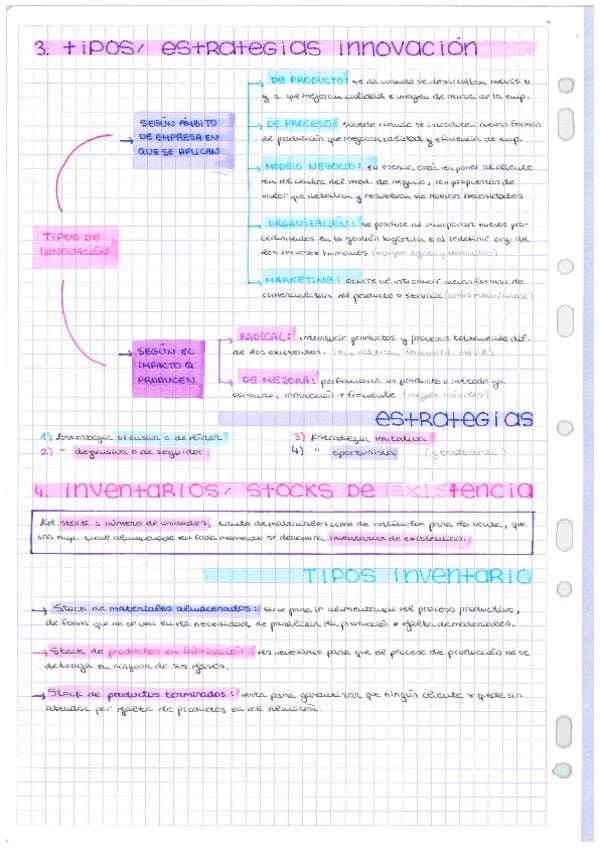 3. tipos/ estrategias innovación
TIPOS DE
INNOVACIÓN
SEGÚN ÁMBITO
DE EMPRESA EN
QUE SE APLICAN
DE PRODUCTO: se da cuando se desarrollan nuevos b
y s. que mejoran calidad e imagen de marca de la emp.
DE PROCESO: sucede cuando se introducen nuevas formas
de producción que mejoran calidad y eficiencia de emp.
MODELO NEGOCIO: su esencia está en poner al cliente
en el centro del mod. de negocio, con propuestas de
valor que detectan y resuelvan sus nuevas necesidades
ORGANIZACIÓN: se produce al incorporar nuevos pro-
cedimientos en la gestión logística o al redefinir org. de
los recursos humanos (equipos ágiles y versátiles)
MARKETING: ocurre al introducir nuevas formas de
comercializar el producto o servicio
SEGÚN EL
IMPACTO Q
PRODUCEN
RADICAL: introducir productos y procesos totalmente dif.
de los existentes.
DE MEJORA: perfeccionar un producto o método ya
conocido, innovación + frecuente (mejora móviles)
estrategias
1) Estrategia ofensiva o de líder
2) " defensiva o de seguidor
3) Estrategia imitativa
4) " oportunista (y tradicional)
4. inventarios/ stocks de existencia
El stock o número de unidades, tanto de materiales como de artículos para la venta, que
una emp. tiene almacenado en cada momento se denomina inventarios de existencias.
TIPOS inventario
→ Stock de materiales almacenados: sirve para ir alimentando el proceso productivo,
de forma que no se vea en la necesidad de paralizar la producción x falta de materiales.
→ Stock de productos en fabricación: es necesario para que el proceso de producción no se
detenga en ninguna de sus fases.
→ Stock de productos terminados: está para garantizar que ningún cliente x quede sin
atender por falta de productos en el almacén.